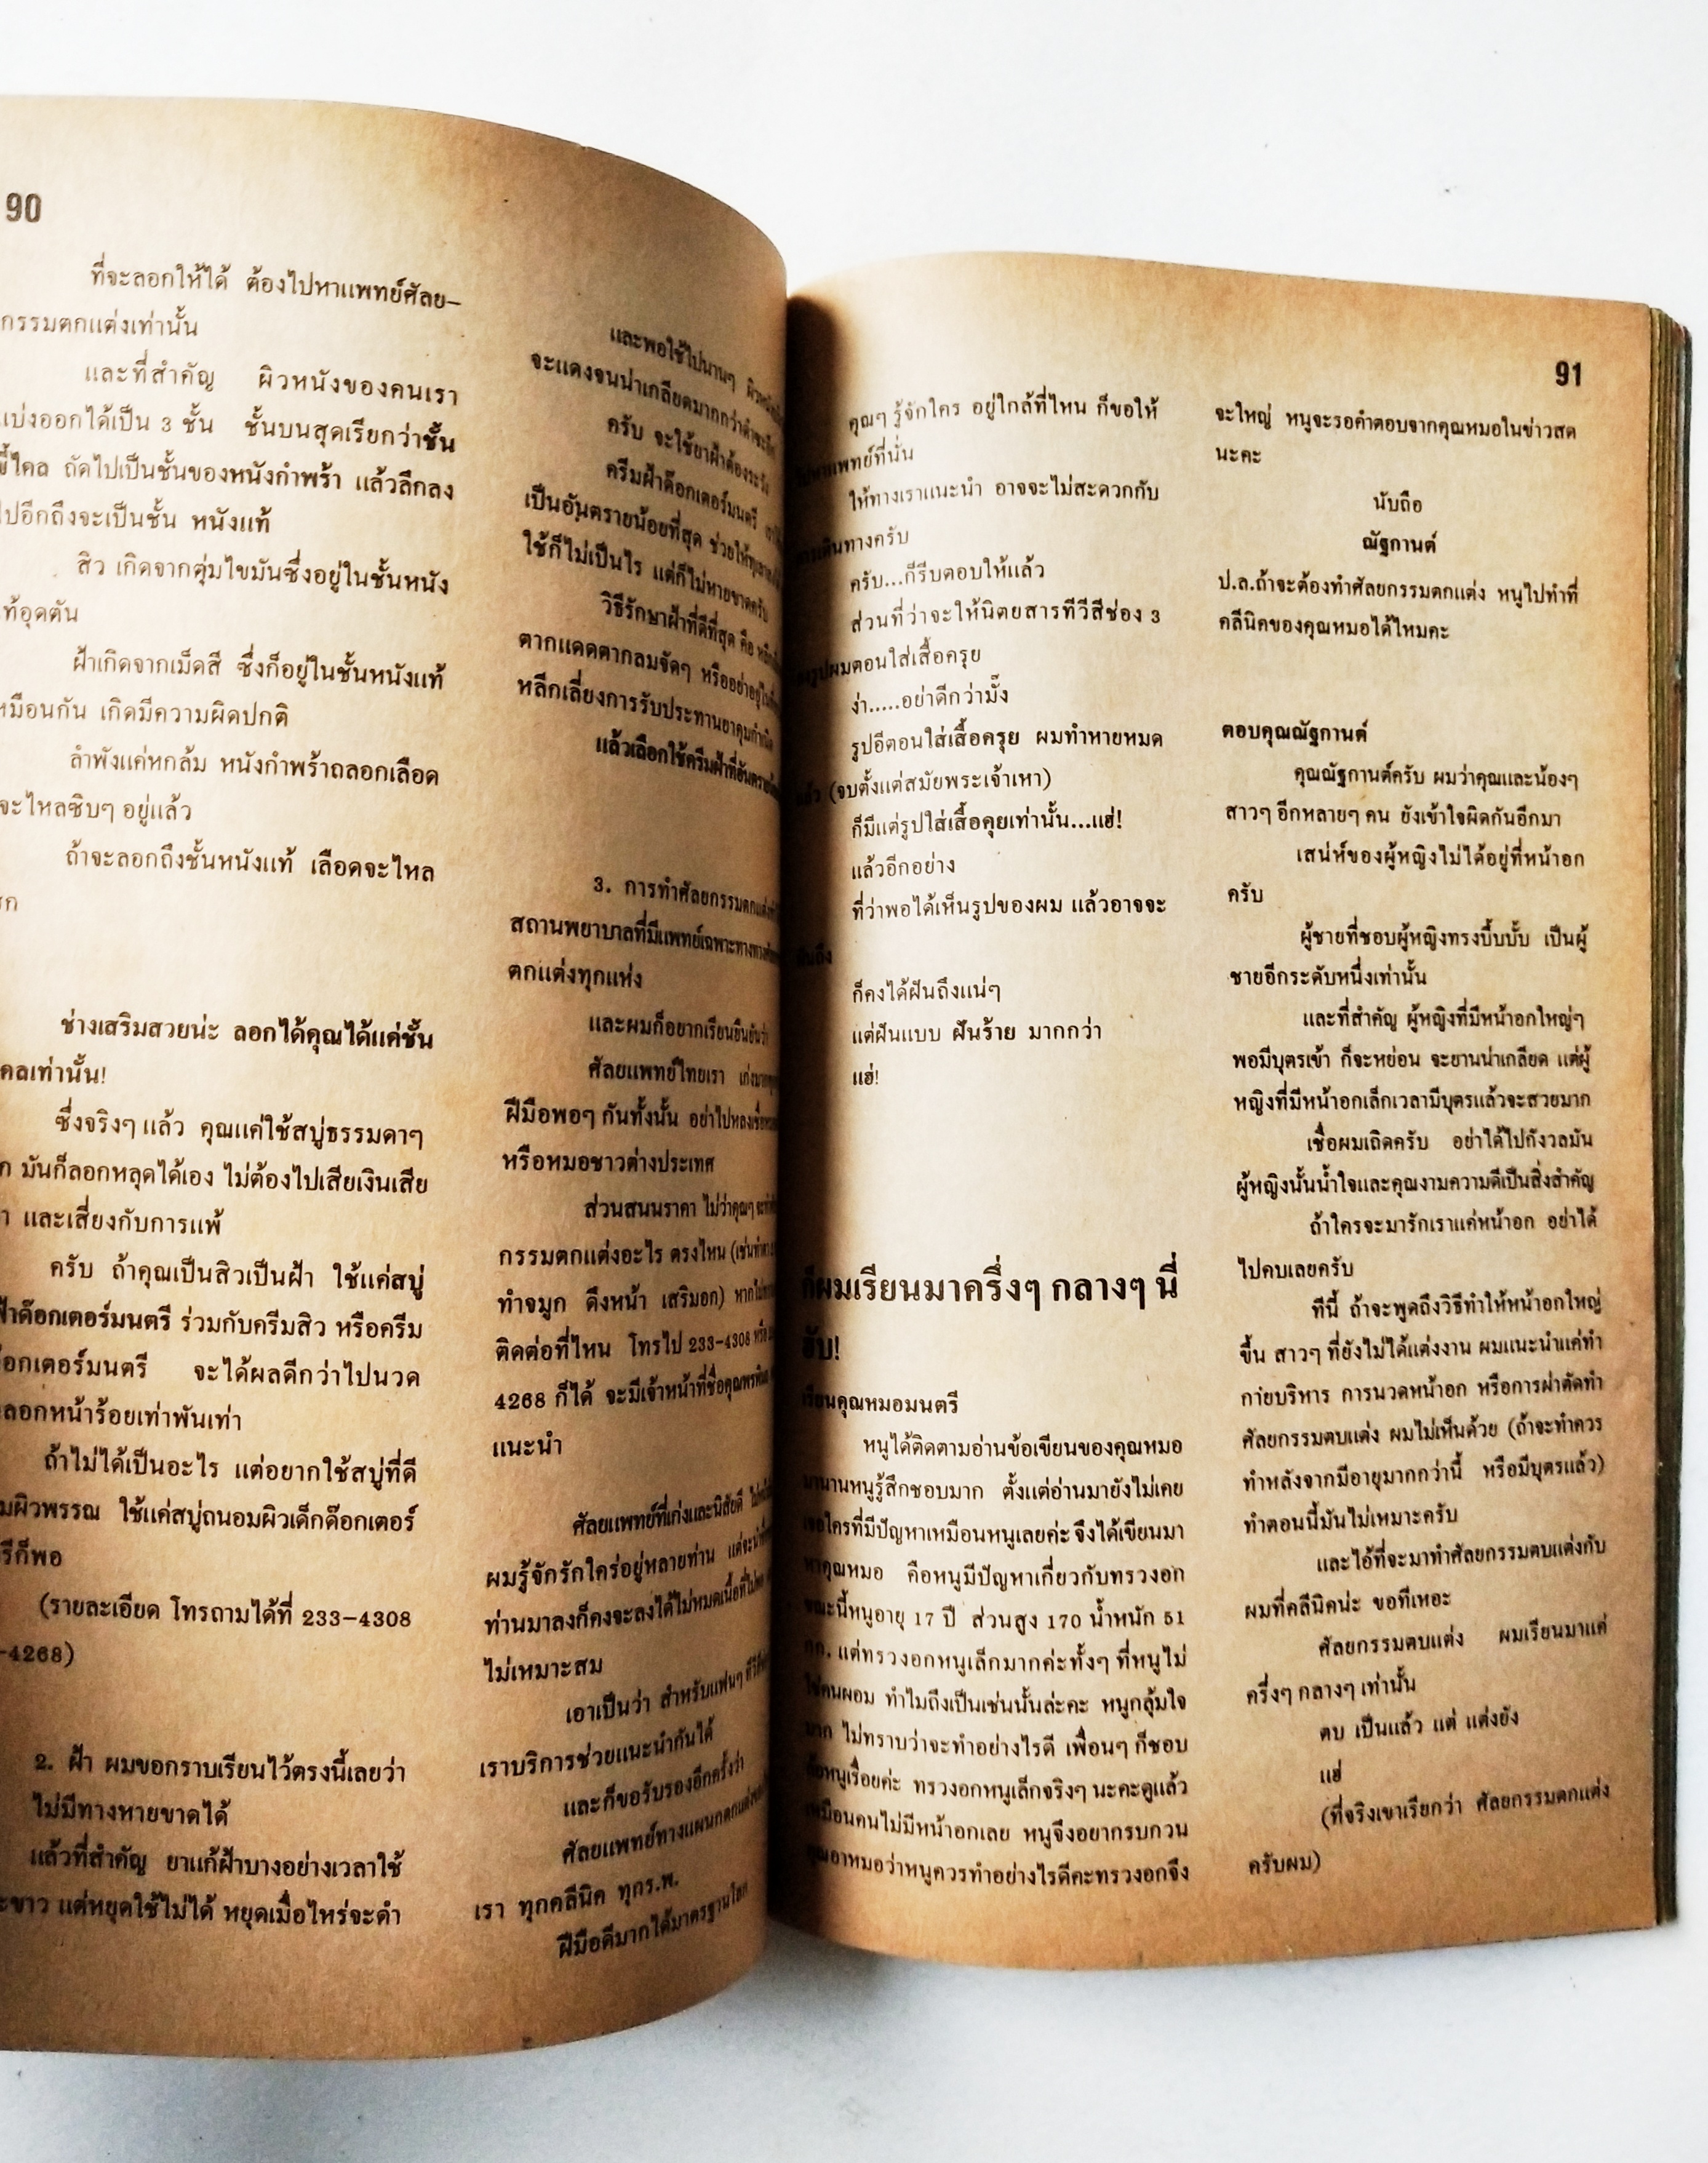 90
ที่จะลอกให้ได้ ต้องไปหาแพทย์ศัลย-
กรรมตกแต่งเท่านั้น
และที่สำคัญ ผิวหนังของคนเรา
แบ่งออกได้เป็น 3 ชั้น ชั้นบนสุดเรียกว่าชั้น
ขี้ไคล ถัดไปเป็นชั้นของหนังกำพร้า แล้วลึกลง
ไปอีกถึงจะเป็นชั้น หนังแท้
สิว เกิดจากตุ่มไขมันซึ่งอยู่ในชั้นหนัง
แท้อุดตัน
ฝ้าเกิดจากเม็ดสี ซึ่งก็อยู่ในชั้นหนังแท้
เหมือนกัน เกิดมีความผิดปกติ
ลำพังแค่หกล้ม หนังกำพร้าถลอกเลือด
จะไหลซิบๆ อยู่แล้ว
ถ้าจะลอกถึงชั้นหนังแท้ เลือดจะไหล
ช่างเสริมสวยน่ะ ลอกได้คุณได้แค่ชั้น
ไคลเท่านั้น!
ซึ่งจริงๆ แล้ว คุณแค่ใช้สบู่ธรรมดาๆ
มันก็ลอกหลุดได้เอง ไม่ต้องไปเสียเงินเสีย
และเสี่ยงกับการแพ้
ครับ ถ้าคุณเป็นสิวเป็นฝ้า ใช้แค่สบู่
ฝ้าด๊อกเตอร์มนตรี ร่วมกับครีมสิว หรือครีม
ด๊อกเตอร์มนตรี จะได้ผลดีกว่าไปนวด
ลอกหน้าร้อยเท่าพันเท่า
ถ้าไม่ได้เป็นอะไร แต่อยากใช้สบู่ที่ดี
ผิวพรรณ ใช้แค่สบู่ถนอมผิวเด็กด๊อกเตอร์
ก็พอ
(รายละเอียด โทรถามได้ที่ 233-4308
-4268)
2. ฝ้า ผมขอกราบเรียนไว้ตรงนี้เลยว่า
ไม่มีทางหายขาดได้
แล้วที่สำคัญ ยาแก้ฝ้าบางอย่างเวลาใช้
จะขาว แต่หยุดใช้ไม่ได้ หยุดเมื่อไหร่จะดำ
และพอใช้ไปนานๆ
จะแดงจนน่าเกลียดมากกว่าดำ
ครับ จะใช้ยาฝ้าต้องระวัง
ครีมฝ้าด๊อกเตอร์มนตรี
เป็นอันตรายน้อยที่สุด
ใช้ก็ไม่เป็นไร แต่ก็ไม่หายขาดครับ
วิธีรักษาฝ้าที่ดีที่สุด คือ
ตากแดดตากลมจัดๆ
หลีกเลี่ยงการรับประทานยาคุมกำเนิด
แล้วเลือกใช้ครีมฝ้าที่
3. การทำศัลยกรรมตกแต่ง
สถานพยาบาลที่มีแพทย์เฉพาะทาง
ตกแต่งทุกแห่ง
และผมก็อยากเรียนยืนยันว่า
ศัลยแพทย์ไทยเรา
ฝีมือพอๆ กันทั้งนั้น อย่าไปหลงเชื่อ
หรือหมอชาวต่างประเทศ
ส่วนสนนราคา ไม่ว่าคุณๆ
กรรมตกแต่งอะไร ตรงไหน
ทำจมูก ดึงหน้า เสริมอก)
ติดต่อที่ไหน โทรไป 233-4308
4268 ก็ได้ จะมีเจ้าหน้าที่ชื่อ
แนะนำ
ศัลยแพทย์ที่เก่งและนิสัยดี
ผมรู้จักรักใคร่อยู่หลายท่าน
ท่านมาลงก็คงจะลงได้ไม่หมด
ไม่เหมาะสม
เอาเป็นว่า สำหรับแฟนๆ
เราบริการช่วยแนะนำกันได้
และก็ขอรับรองอีกครั้งว่า
ศัลยแพทย์ทางแผน
เรา ทุกคลีนิค ทุกร.พ.
ฝีมือดีมากได้มาตรฐานโลก
91
คุณๆ รู้จักใคร อยู่ใกล้ที่ไหน ก็ขอให้
ไปหาแพทย์ที่นั่น
ให้ทางเราแนะนำ อาจจะไม่สะดวกกับ
การเดินทางครับ
ครับ...ก็รีบตอบให้แล้ว
ส่วนที่ว่าจะให้นิตยสารทีวีสีช่อง 3
ลงรูปผมตอนใส่เสื้อครุย
ง่า.....อย่าดีกว่ามั้ง
รูปอีตอนใส่เสื้อครุย ผมทำหายหมด
แล้ว (จบตั้งแต่สมัยพระเจ้าเหา)
ก็มีแต่รูปใส่เสื้อคุยเท่านั้น...แฮ่!
แล้วอีกอย่าง
ที่ว่าพอได้เห็นรูปของผม แล้วอาจจะ
ฝันถึง
ก็คงได้ฝันถึงแน่ๆ
แต่ฝันแบบ ฝันร้าย มากกว่า
แฮ่!
ก็ผมเรียนมาครึ่งๆ กลางๆ นี่
ฮับ!
เรียนคุณหมอมนตรี
หนูได้ติดตามอ่านข้อเขียนของคุณหมอ
มานานหนูรู้สึกชอบมาก ตั้งแต่อ่านมายังไม่เคย
เจอใครที่มีปัญหาเหมือนหนูเลยค่ะ จึงได้เขียนมา
หาคุณหมอ คือหนูมีปัญหาเกี่ยวกับทรวงอก
ขณะนี้หนูอายุ 17 ปี ส่วนสูง 170 น้ำหนัก 51
กก. แต่ทรวงอกหนูเล็กมากค่ะทั้งๆ ที่หนูไม่
ใช่คนผอม ทำไมถึงเป็นเช่นนั้นล่ะคะ หนูกลุ้มใจ
มาก ไม่ทราบว่าจะทำอย่างไรดี เพื่อนๆ ก็ชอบ
ล้อหนูเรื่อยค่ะ ทรวงอกหนูเล็กจริงๆ นะคะดูแล้ว
เหมือนคนไม่มีหน้าอกเลย หนูจึงอยากรบกวน
คุณอาหมอว่าหนูควรทำอย่างไรดีคะทรวงอกจึง
จะใหญ่ หนูจะรอคำตอบจากคุณหมอในข่าวสด
นะคะ
นับถือ
ณัฐกานต์
ป.ล.ถ้าจะต้องทำศัลยกรรมตกแต่ง หนูไปทำที่
คลีนิคของคุณหมอได้ไหมคะ
ตอบคุณณัฐกานต์
คุณณัฐกานต์ครับ ผมว่าคุณและน้องๆ
สาวๆ อีกหลายๆ คน ยังเข้าใจผิดกันอีกมา
เสน่ห์ของผู้หญิงไม่ได้อยู่ที่หน้าอก
ครับ
ผู้ชายที่ชอบผู้หญิงทรงบึ้บบั้บ เป็นผู้
ชายอีกระดับหนึ่งเท่านั้น
และที่สำคัญ ผู้หญิงที่มีหน้าอกใหญ่ๆ
พอมีบุตรเข้า ก็จะหย่อน จะยานน่าเกลียด แต่ผู้
หญิงที่มีหน้าอกเล็กเวลามีบุตรแล้วจะสวยมาก
เชื่อผมเถิดครับ อย่าได้ไปกังวลมัน
ผู้หญิงนั้นน้ำใจและคุณงามความดีเป็นสิ่งสำคัญ
ถ้าใครจะมารักเราแค่หน้าอก อย่าได้
ไปคบเลยครับ
ทีนี้ ถ้าจะพูดถึงวิธีทำให้หน้าอกใหญ่
ขึ้น สาวๆ ที่ยังไม่ได้แต่งงาน ผมแนะนำแค่ทำ
กายบริหาร การนวดหน้าอก หรือการผ่าตัดทำ
ศัลยกรรมตบแต่ง ผมไม่เห็นด้วย (ถ้าจะทำควร
ทำหลังจากมีอายุมากกว่านี้ หรือมีบุตรแล้ว)
ทำตอนนี้มันไม่เหมาะครับ
และไอ้ที่จะมาทำศัลยกรรมตบแต่งกับ
ผมที่คลีนิคน่ะ ขอทีเหอะ
ศัลยกรรมตบแต่ง ผมเรียนมาแค่
ครึ่งๆ กลางๆ เท่านั้น
ตบ เป็นแล้ว แต่ แต่งยัง
แฮ่
(ที่จริงเขาเรียกว่า ศัลยกรรมตกแต่ง
ครับผม)